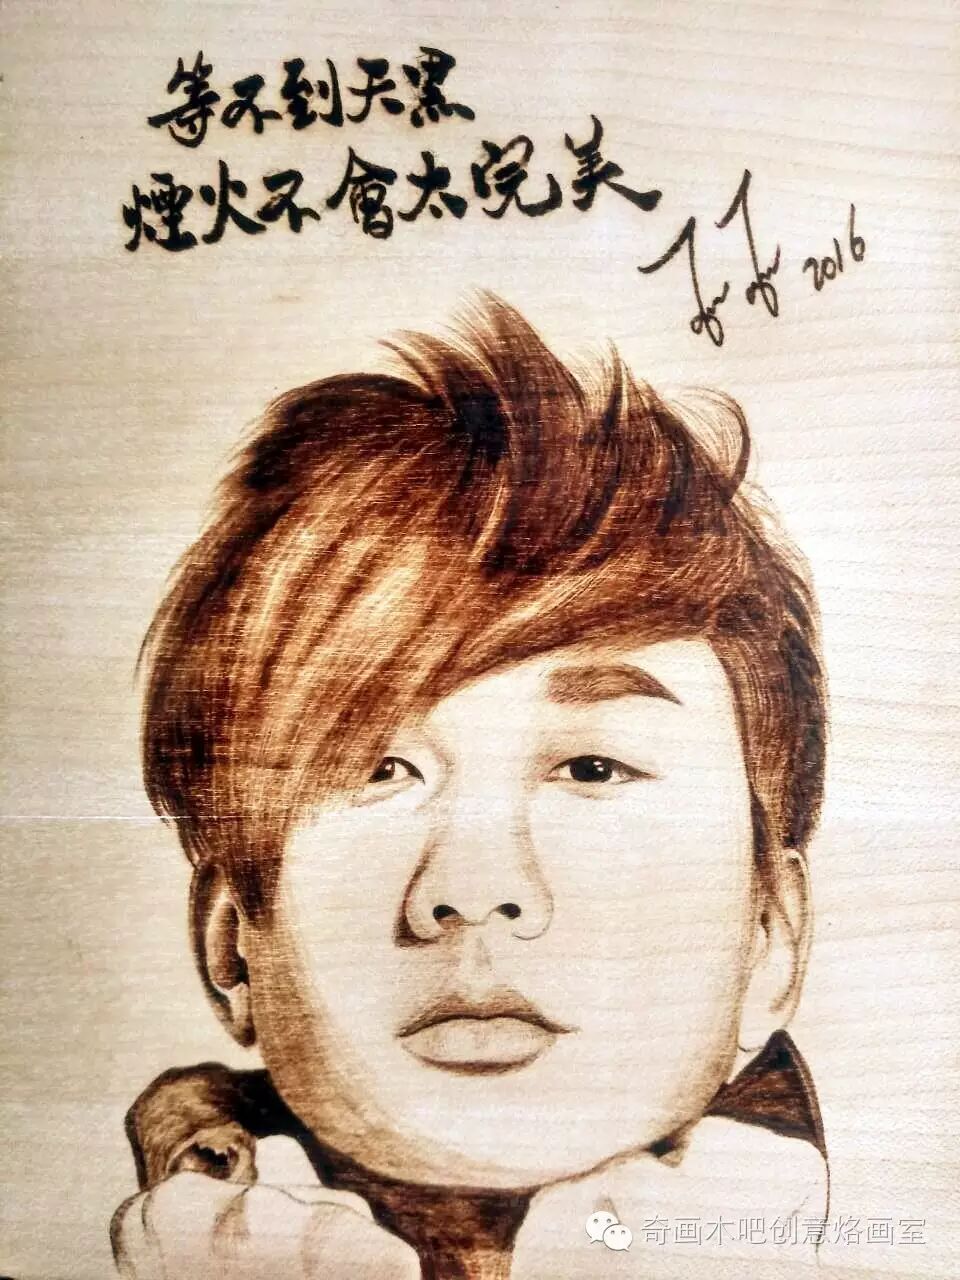 等不到天黑
煙火不會太完美
JJ 2016
奇画木吧创意烙画室